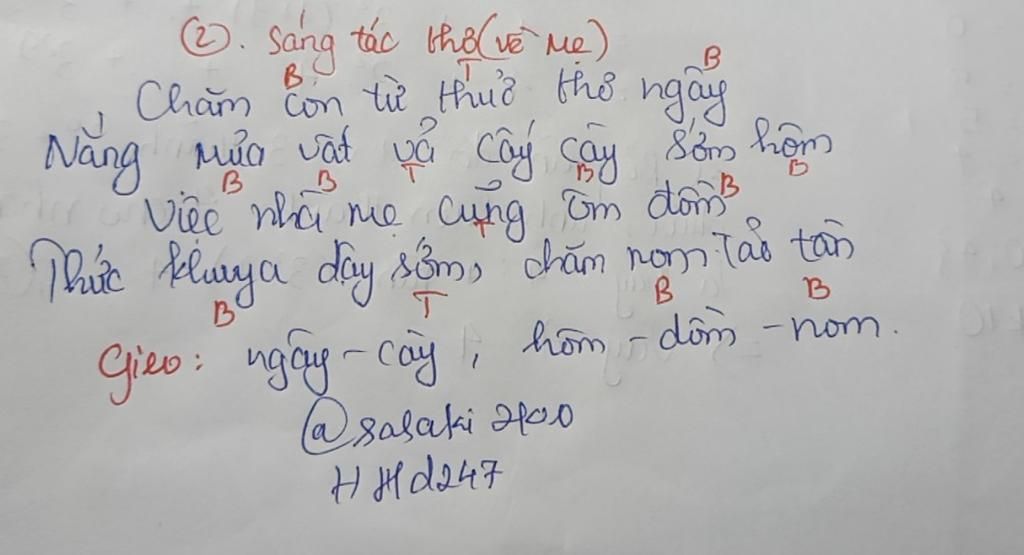 (2). Sáng tác thơ (về Mẹ)
B T B
Chăm con từ thuở thơ ngây
Nắng mưa vất vả cấy cày sớm hôm
B B T B B
Việc nhà mẹ cũng ôm đồm B
T
Thức khuya dậy sớm, chăm nom tảo tần
B T B B
Gieo: ngây - cày, hôm - đồm - nom.
@sasaki2400
HHd247